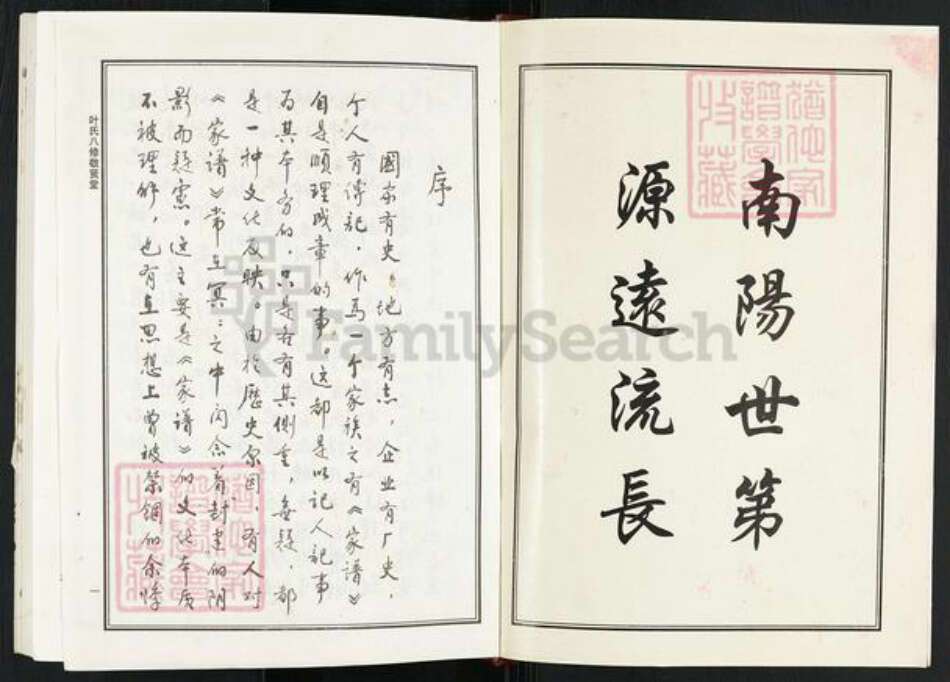 南陽世第
源遠流長
猶他家譜學會收藏
序
國家有史，地方有志，企业有厂史，
个人有传记，作为一个家族之有《家谱》
自是顺理成章的事。这都是以记人记事
为其本旨的，只是各有其侧重，無疑，都
是一种文化反映。由於歷史原因，有人对
《家谱》常在冥冥之中闪念着封建的阴
影而疑虑。这主要是《家谱》的文化本质
不被理解，也有在思想上曾被禁锢的余悸
猶他家譜學會收藏
叶氏八修敬贤堂
一
FamilySearch